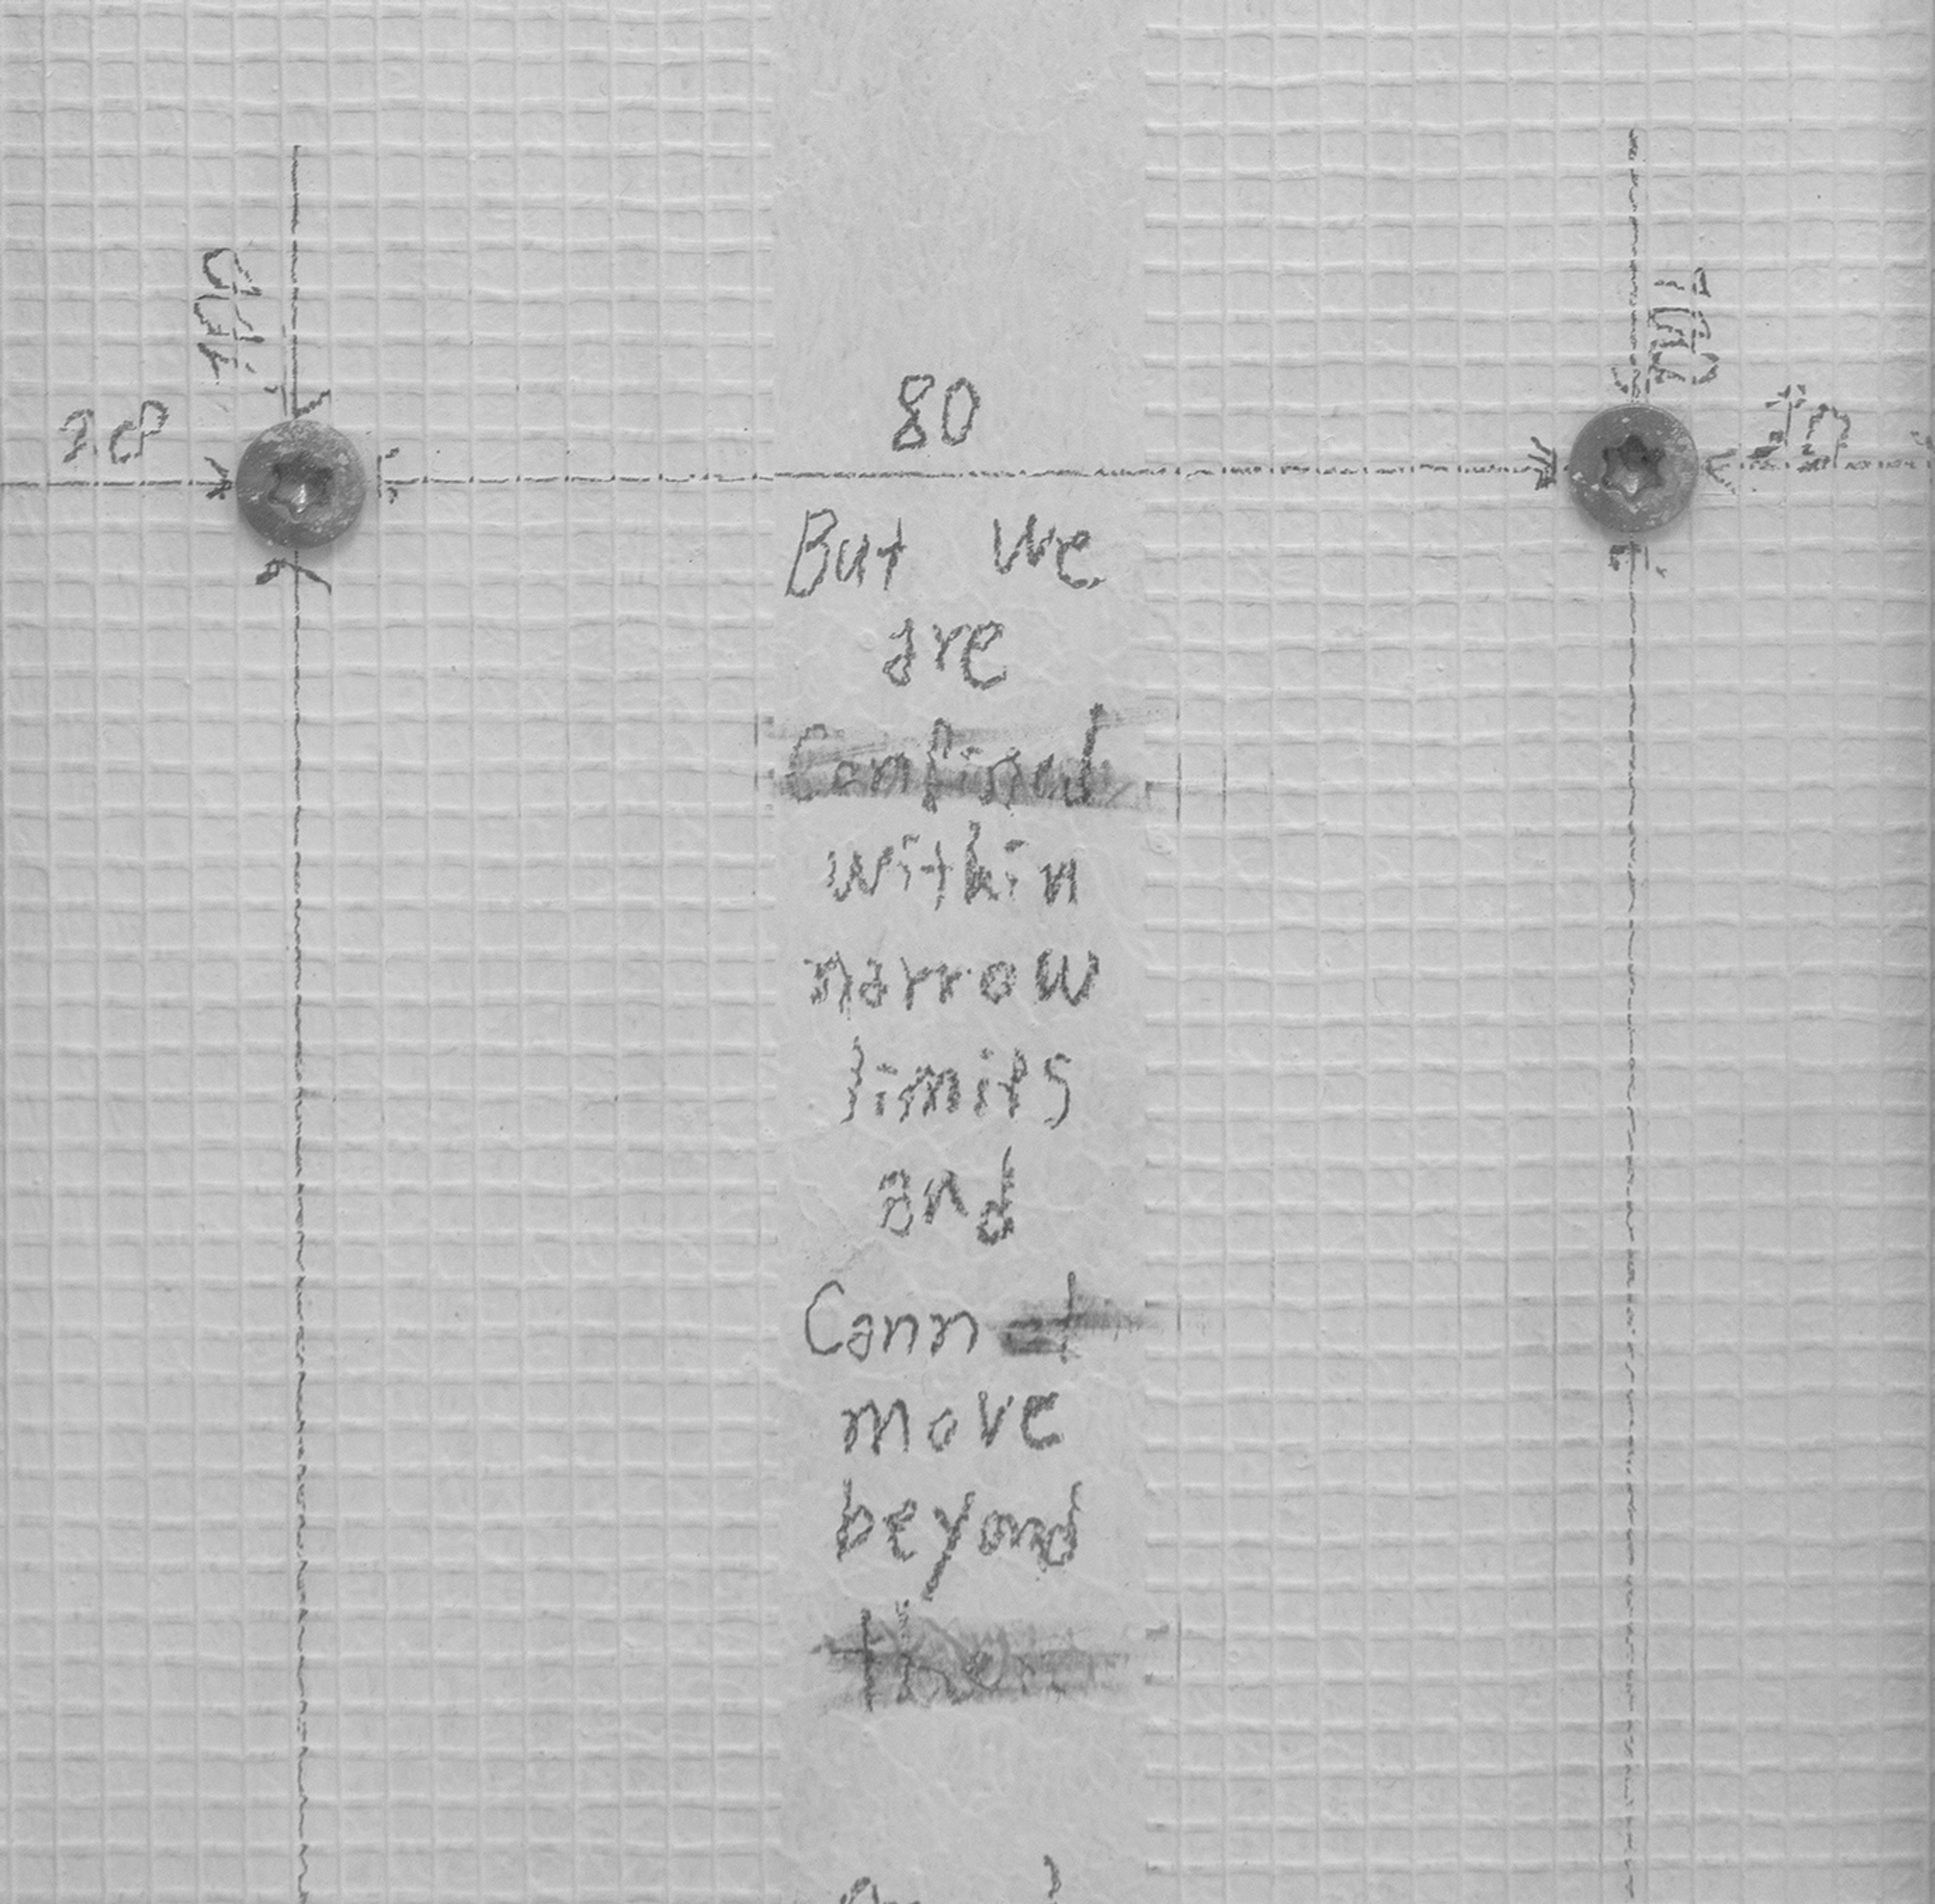 80
But we
are
Confined
within
narrow
limits
and
Cannot
move
beyond